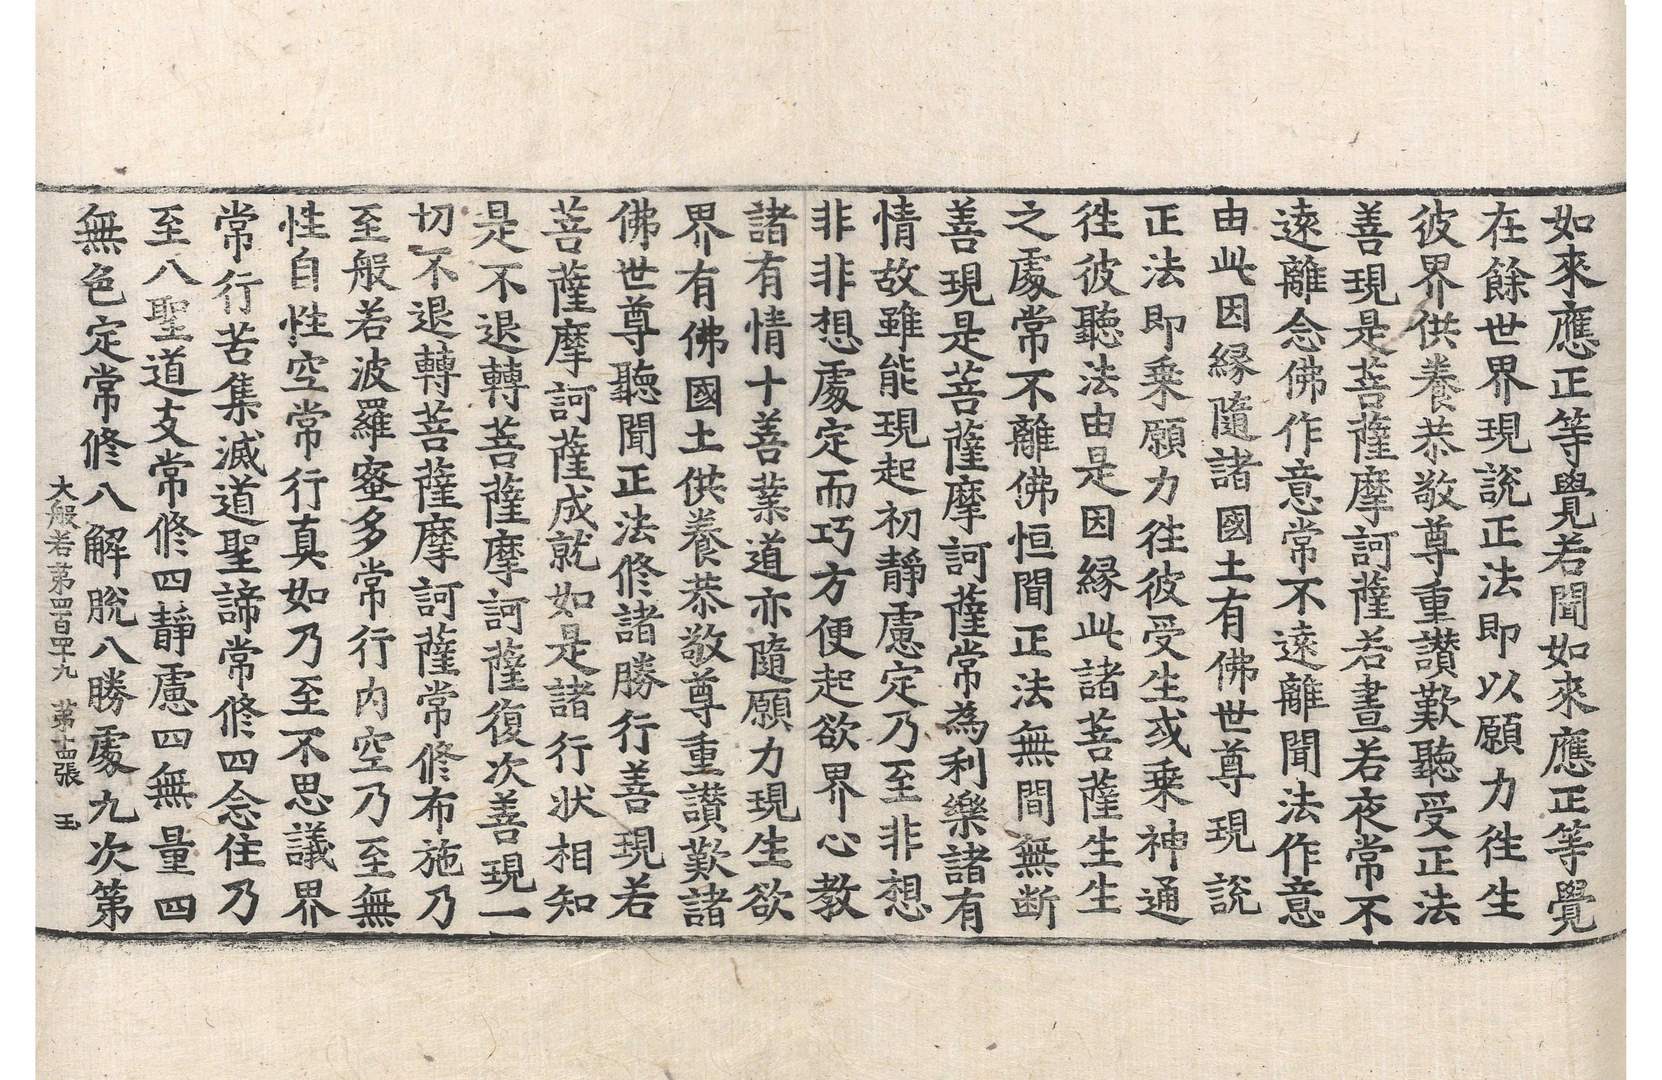 如來應正等覺若聞如來應正等覺
在餘世界現說正法即以願力徃生
彼界供養恭敬尊重讚歎聽受正法
善現是菩薩摩訶薩若晝若夜常不
遠離念佛作意常不遠離聞法作意
由此因緣隨諸國土有佛世尊現說
正法即乗願力徃彼受生或乗神通
徃彼聽法由是因緣此諸菩薩生生
之處常不離佛恒聞正法無間無断
善現是菩薩摩訶薩常為利樂諸有
情故雖能現起初靜慮定乃至非想
非非想處定而巧方便起欲界心教
諸有情十善業道亦隨願力現生欲
界有佛國土供養恭敬尊重讚歎諸
佛世尊聽聞正法修諸勝行善現若
菩薩摩訶薩成就如是諸行狀相知
是不退轉菩薩摩訶薩復次善現一
切不退轉菩薩摩訶薩常修布施乃
至般若波羅蜜多常行內空乃至無
性自性空常行真如乃至不思議界
常行苦集滅道聖諦常修四念住乃
至八聖道支常修四靜慮四無量四
無色定常修八解脫八勝處九次第
大般若苐四百四十九 苐十四張 玉